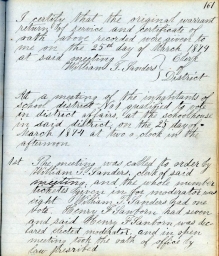 161
I certify that the original warrant
return of service and certificate of
oath above recorded were given to
me on the 25th day of March 1874
at said meeting
William S. Sanders Clerk
District
At a meeting of the inhabitants of
school district, No. 1 qualified to vote
in district affairs, at the schoolhouse
in said district, on the 25 day of
March 1874 at two o'clock in the
afternoon
1st The meeting was called to order by
William S. Sanders, clerk of said
meeting, and the whole number
tickets given in for moderator was
eight William S. Sanders had one
vote Henry F. Sanborn had seven
and said Henry F. Sanborn was dec-
lared elected moderator, and in open
meeting took the oath of office by
law prescribed